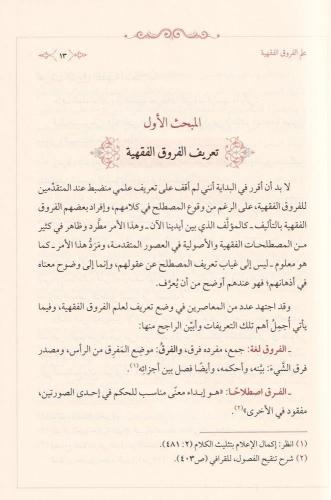 علم الفروق الفقهية
١٣
المبحث الأول
تعريف الفروق الفقهية
لا بد أن أقرر في البداية أنني لم أقف على تعريف علمي منضبط عند المتقدّمين
للفروق الفقهية، على الرغم من وقوع المصطلح في كلامهم، وإفراد بعضهم الفروق
الفقهية بالتأليف ـ كالمؤلَّف الذي بين أيدينا الآن ـ وهذا الأمر مطَّرد وظاهر في كثير
من المصطلحات الفقهية والأصولية في العصور المتقدمة، ومَرَدُّ هذا الأمر ـ كما
هو معلوم ـ ليس إلى غياب تعريف المصطلح عن عقولهم، وإنما إلى وضوح معناه
في أذهانهم؛ فهو عندهم أوضح من أن يُعرَّف.
وقد اجتهد عدد من المعاصرين في وضع تعريف لعلم الفروق الفقهية، وفيما
يأتي أُجمِلُ أهم تلك التعريفات وأبيّن الراجح منها:
ـ الفروق لغة: جمع، مفرده فرق، والفرقُ: موضع المَفرِق من الرأس، ومصدر
فرق الشَّيءَ: بيَّنه، وأحكمه، وأيضًا فصل بين أجزائِهِ(١).
ـ الفرق اصطلاحًا: «هو إبداء معنًى مناسب للحكم في إحدى الصورتين،
مفقود في الأخرى»(٢).
(١) انظر: إكمال الإعلام بتثليث الكلام (٢: ٤٨١).
(٢) شرح تنقيح الفصول، للقرافي (ص٤٠٣).